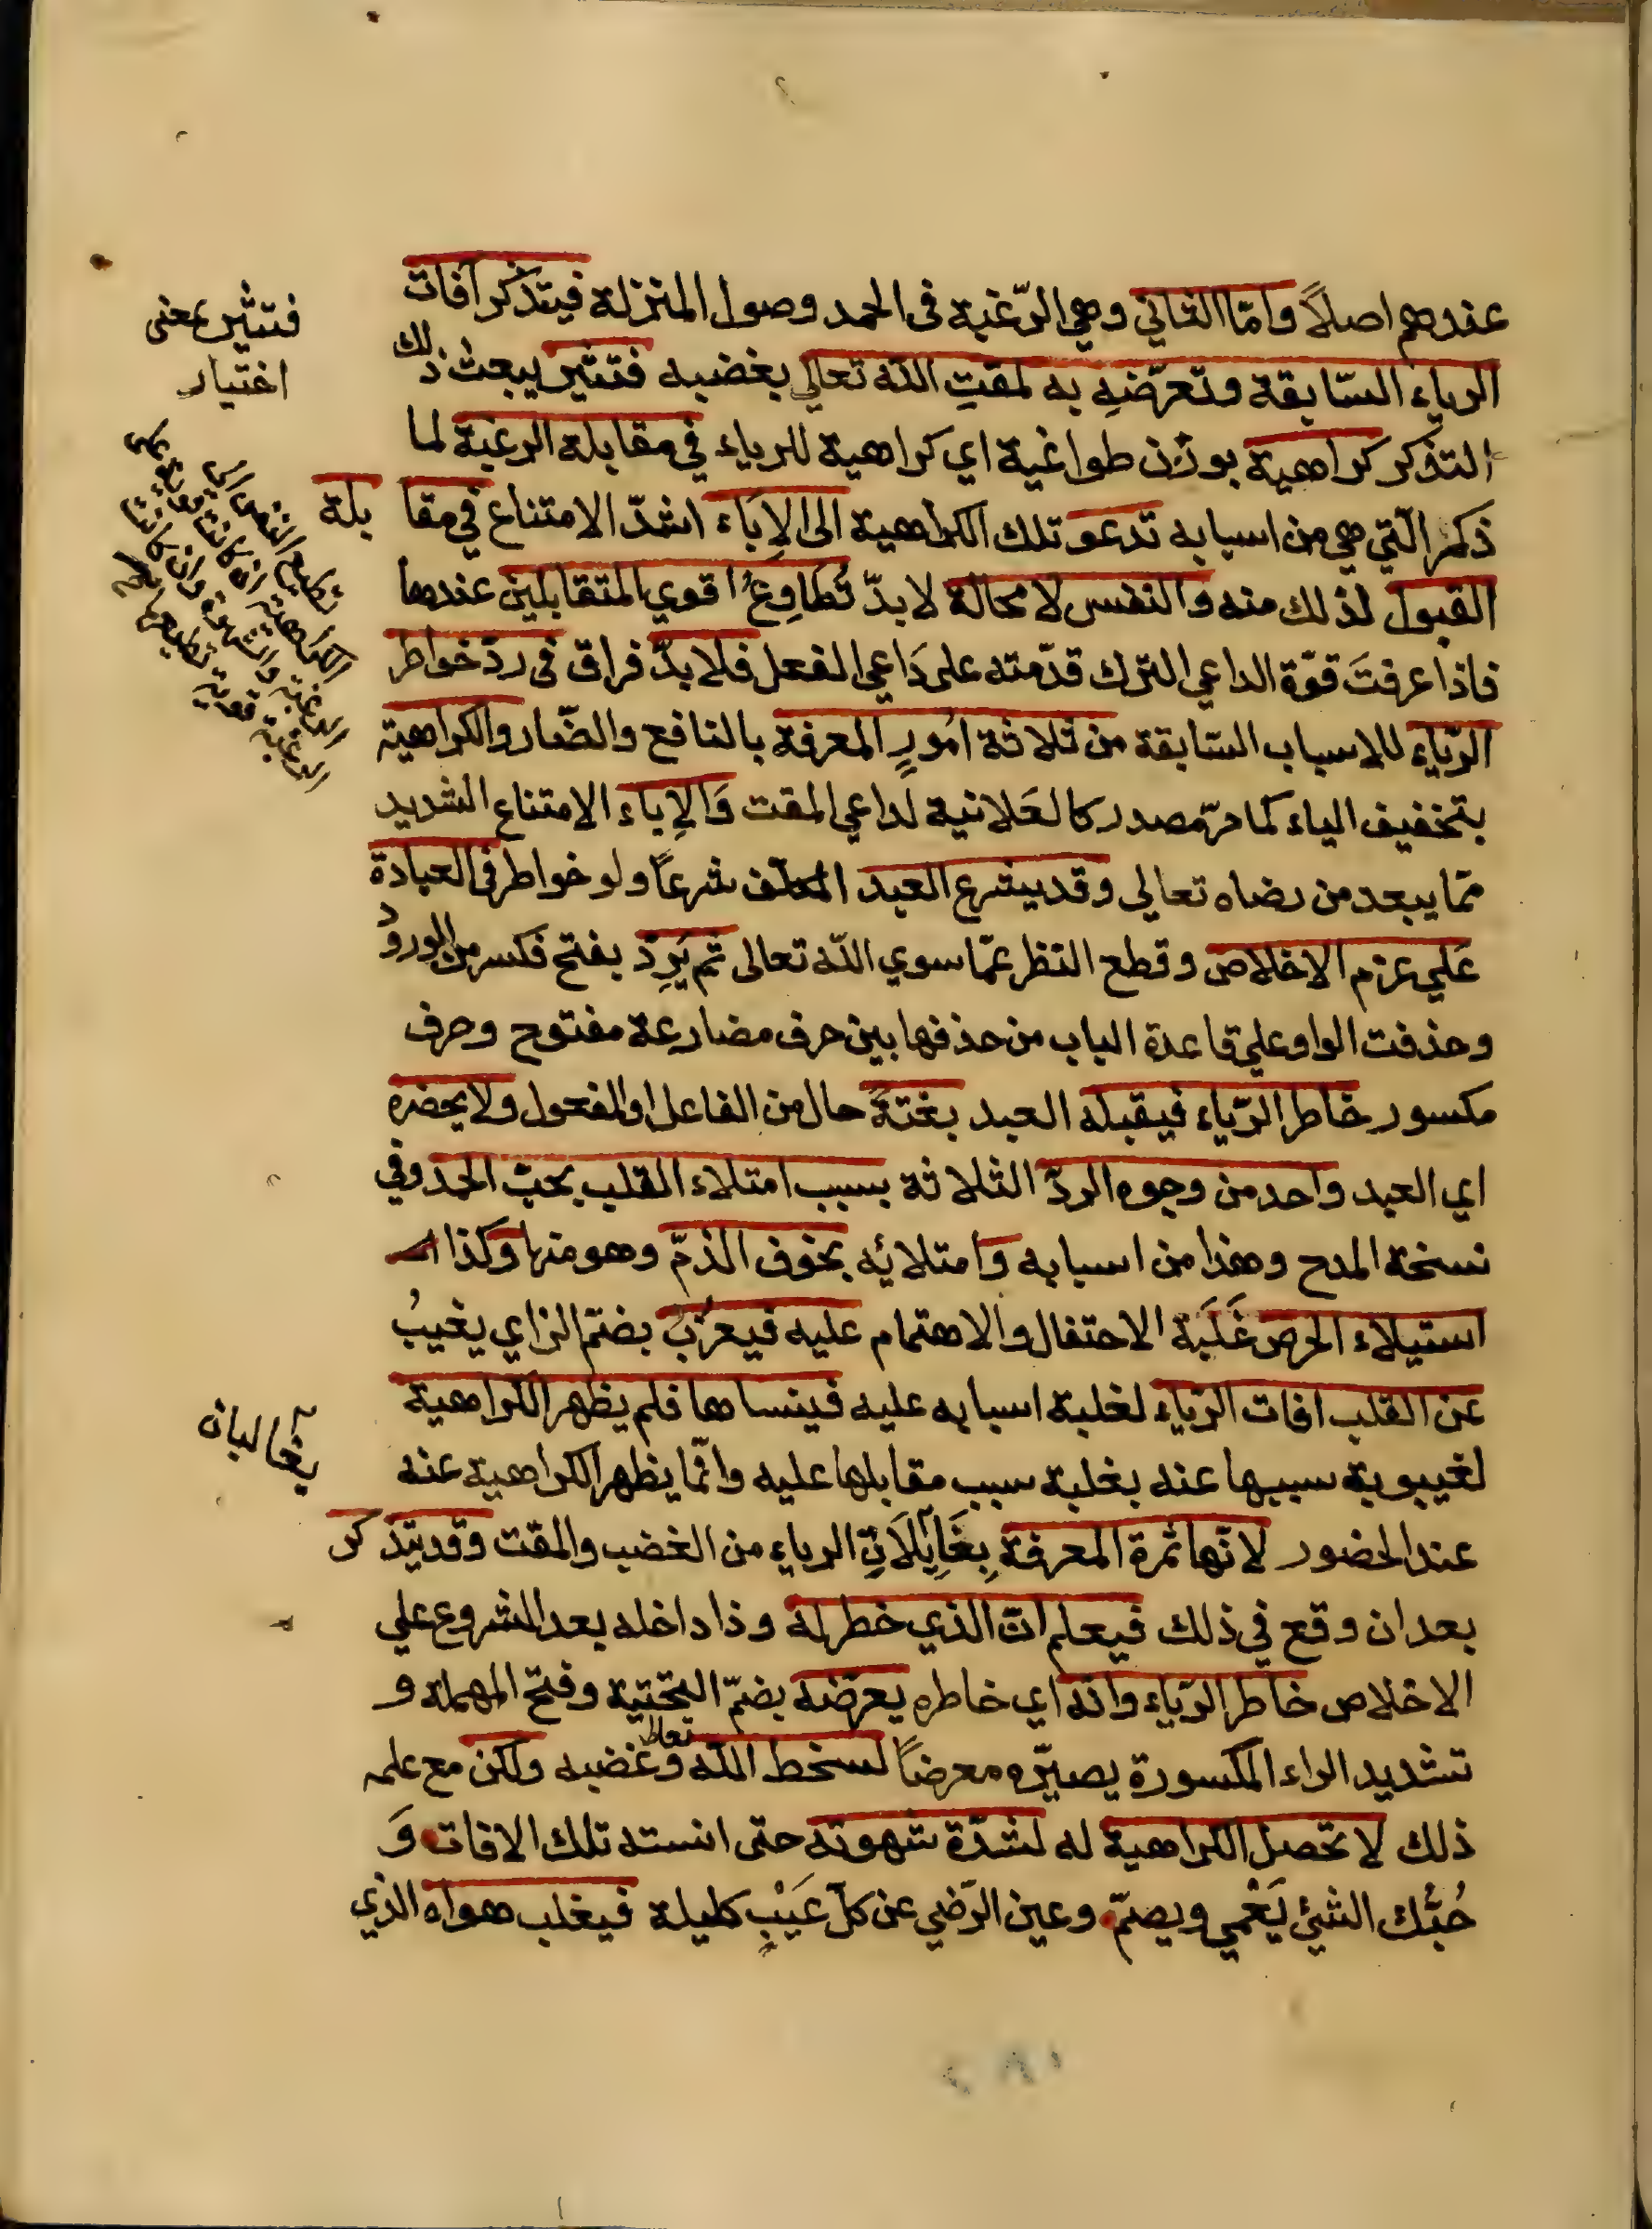 عندهم اصلاً وامّا الثاني وهي الرّغبة فى الحمد وصول المنزلة فيتذكر آفات
الرياء السّابقة وتعرّضه به لمقت الله تعالي بغضبه فتثير يبعث ذلك
التذكر كراهية بوزن طواغية اي كراهية للرياء في مقابلة الرغبة لما
ذكر الّتي هي من اسبابه تدعو تلك الكراهية الى الإباء اشدّ الامتناع في مقا بلة
القبول لذلك منه والنفس لا محالة لا بدّ تُطاوِعُ اقوي المتقابلين عندها
فاذا عرفتَ قوّة الداعي الترك قدّمته على دَاعي الفعل فلا بدّ فراق فى ردّ خواطر
الرّياء للاسباب السّابقة من ثلاثة امُورٍ المعرفة بالنافع والضّار والكراهية
بتخفيف الياء كما مرّ مصدر كالعَلانية لداعي المقت وَالإباء الامتناع الشديد
ممّا يبعد من رضاه تعالى وقد يشرع العبد المكلّف شرعاً ولو خواطر فى العبادة
عَلي عزم الاخلاص وقطع النظر عمّا سوي اللّه تعالى ثم يَرِدُ بفتح فكسر من الورود
وحذفت الواو على قاعدة الباب من حذفها بين حرف مضارعة مفتوح وحرف
مكسور خاطر الرّياء فيقبله العبد بغتةً حال من الفاعل او المفعول ولا يحضره
اي العبد واحد من وجوه الردّ الثلاثة بسبب امتلاء القلب بحبّ الحمد وفي
نسخة المدح وهذا من اسبابه وامتلائه بخوف الذمّ وهو منها وكذا
استيلاء الحرص غَلَبَة الاحتفال والاهتمام عليه فيعزُبُ بضمّ الزاي يغيبُ
عن القلب افات الرّياء لغلبة اسبابه عليه فينساها فلم يظهر الكراهية
لغيبوبة سببها عنه بغلبة سبب مقابلها عليه وانّما يظهر الكراهية عنه
عند الحضور لانّها ثمرة المعرفة بِغَايَلَاتِ الرياء من الغضب والمقت وقد يتذكر
بعد ان وقع في ذلك فيعلم انّ الذي خطر له وذا داخله بعد الشروع علي
الاخلاص خاطر الرّياء وانّه اي خاطره يعرّضه بضمّ التحتية وفتح المهملة و
تشديد الراء المكسورة يصيّره معرضاً لسخط اللّه تعالى وغضبه ولكن مع علمه
ذلك لا تحصل الكراهية له لشدّة شهوته حتى انسته تلك الافات وَ
حُبُّك الشئ يَعْمي ويصمّ وعين الرّضي عن كلّ عَيْبٍ كليلة فيغلب هواه الذي
فتثير بمعنى
اختيار
تطيع النفس اي
الكراهية ان كانت قوية
الرغبة والشهوة وان كانت
الرغبة قوية تطيعها